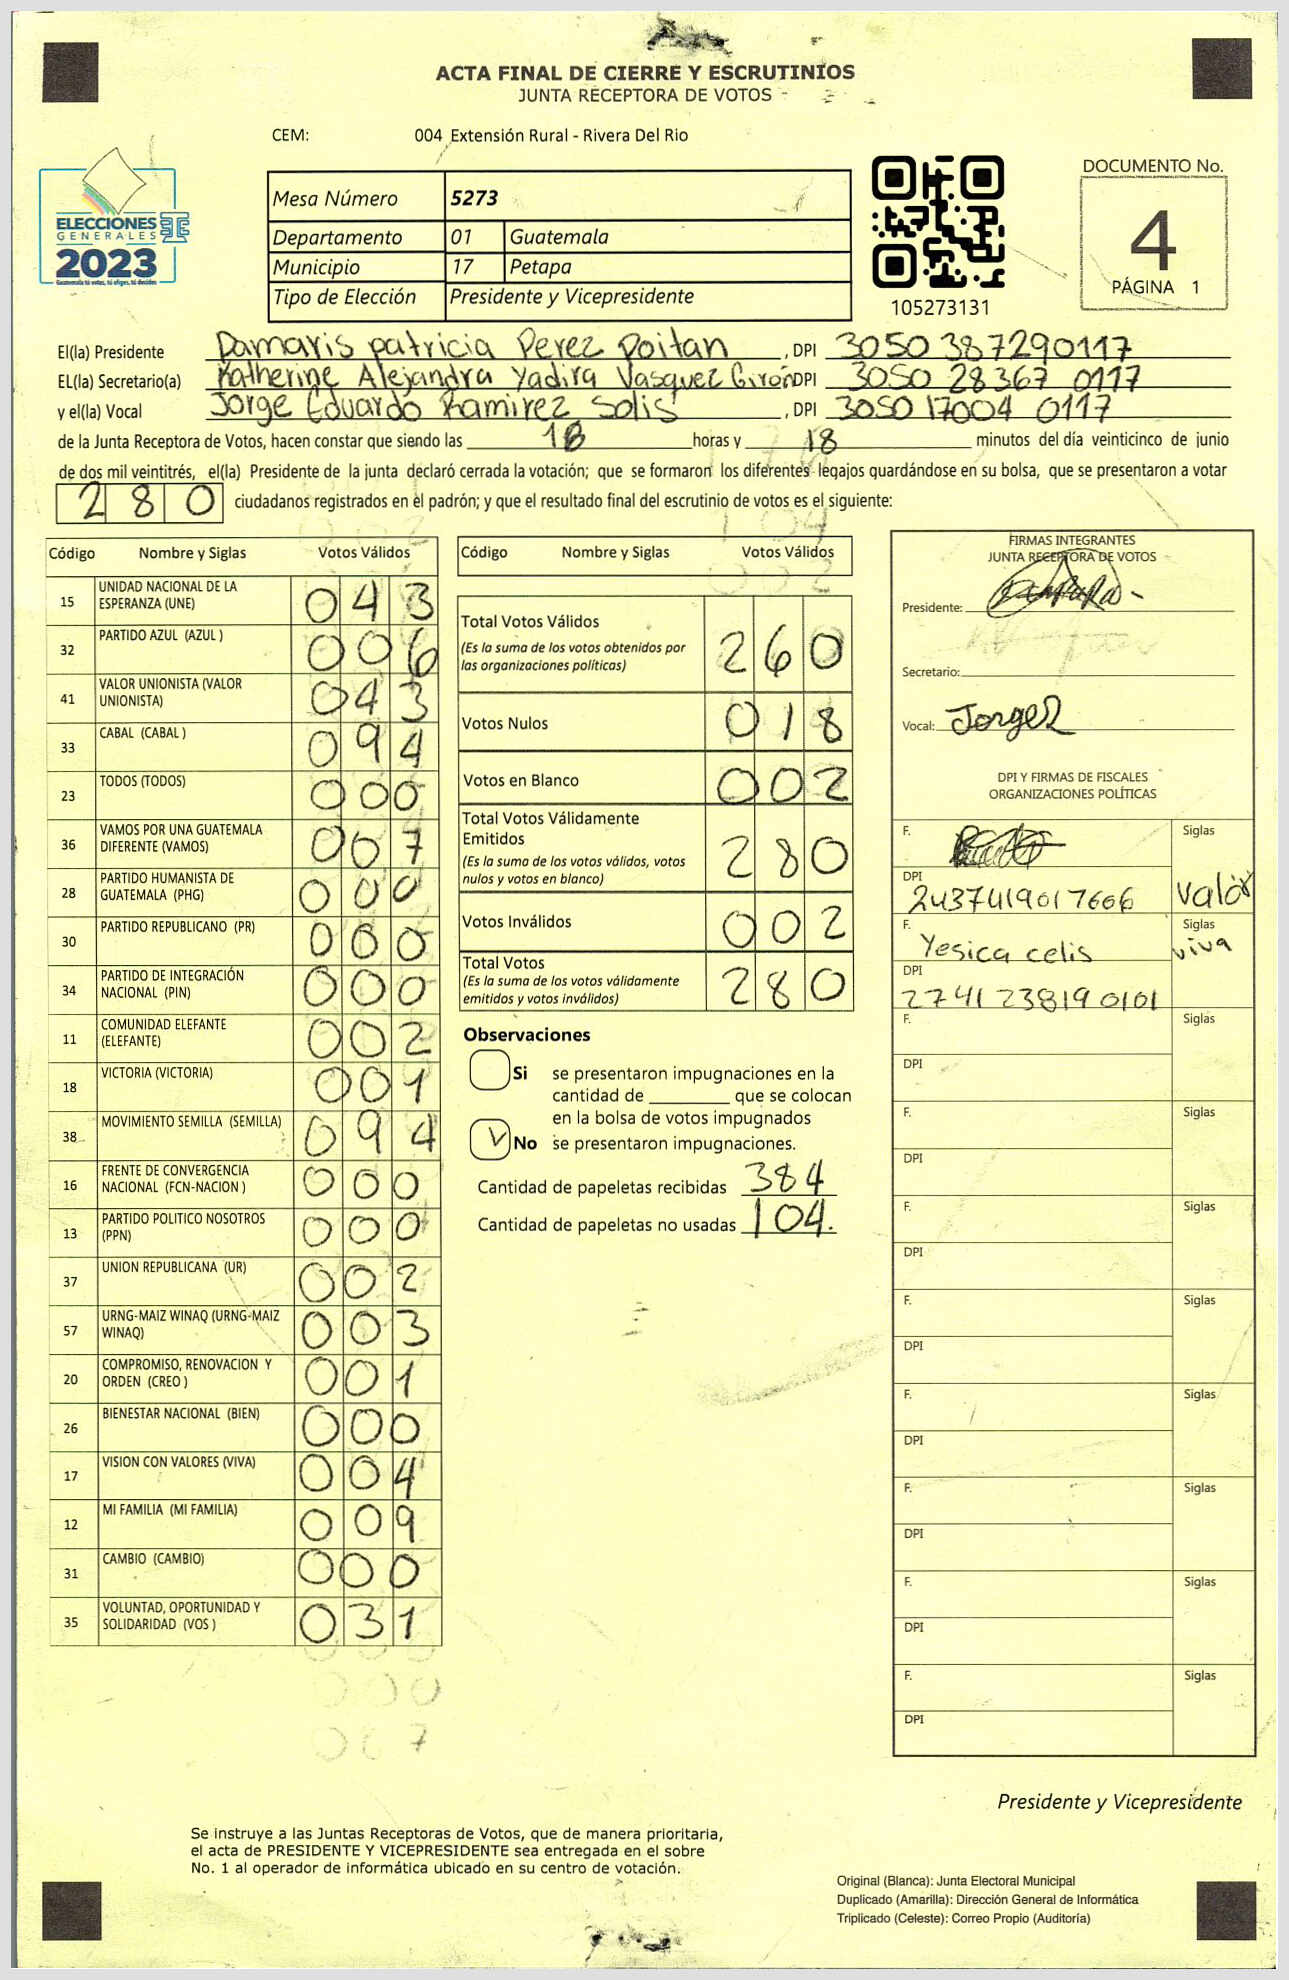 ACTA FINAL DE CIERRE Y ESCRUTINIOS
JUNTA RECEPTORA DE VOTOS
CEM: 004 Extensión Rural - Rivera Del Rio
ELECCIONES
GENERALES
2023
Guatemala tú votas, tú eliges, tú decides
Mesa Número 5273
Departamento 01 Guatemala
Municipio 17 Petapa
Tipo de Elección Presidente y Vicepresidente
105273131
DOCUMENTO No.
4
PÁGINA 1
El(la) Presidente Damaris patricia Perez Poitan, DPI 3050 387290117
EL(la) Secretario(a) Katherine Alejandra Yadira Vasquez Girón DPI 3050 28367 0117
y el(la) Vocal Jorge Eduardo Ramirez Solis, DPI 3050 17004 0117
de la Junta Receptora de Votos, hacen constar que siendo las 18 horas y 18 minutos del día veinticinco de junio
de dos mil veintitrés, el(la) Presidente de la junta declaró cerrada la votación; que se formaron los diferentes legajos guardándose en su bolsa, que se presentaron a votar
280 ciudadanos registrados en el padrón; y que el resultado final del escrutinio de votos es el siguiente:
Código Nombre y Siglas Votos Válidos
15 UNIDAD NACIONAL DE LA ESPERANZA (UNE) 043
32 PARTIDO AZUL (AZUL ) 006
41 VALOR UNIONISTA (VALOR UNIONISTA) 043
33 CABAL (CABAL ) 094
23 TODOS (TODOS) 000
36 VAMOS POR UNA GUATEMALA DIFERENTE (VAMOS) 007
28 PARTIDO HUMANISTA DE GUATEMALA (PHG) 000
30 PARTIDO REPUBLICANO (PR) 000
34 PARTIDO DE INTEGRACIÓN NACIONAL (PIN) 000
11 COMUNIDAD ELEFANTE (ELEFANTE) 002
18 VICTORIA (VICTORIA) 001
38 MOVIMIENTO SEMILLA (SEMILLA) 094
16 FRENTE DE CONVERGENCIA NACIONAL (FCN-NACION ) 000
13 PARTIDO POLITICO NOSOTROS (PPN) 000
37 UNION REPUBLICANA (UR) 002
57 URNG-MAIZ WINAQ (URNG-MAIZ WINAQ) 003
20 COMPROMISO, RENOVACION Y ORDEN (CREO ) 001
26 BIENESTAR NACIONAL (BIEN) 000
17 VISION CON VALORES (VIVA) 004
12 MI FAMILIA (MI FAMILIA) 009
31 CAMBIO (CAMBIO) 000
35 VOLUNTAD, OPORTUNIDAD Y SOLIDARIDAD (VOS ) 031
Código Nombre y Siglas Votos Válidos
Total Votos Válidos 260
(Es la suma de los votos obtenidos por
las organizaciones políticas)
Votos Nulos 018
Votos en Blanco 002
Total Votos Válidamente
Emitidos 280
(Es la suma de los votos válidos, votos
nulos y votos en blanco)
Votos Inválidos 002
Total Votos 280
(Es la suma de los votos válidamente
emitidos y votos inválidos)
Observaciones
Si se presentaron impugnaciones en la
cantidad de ________ que se colocan
en la bolsa de votos impugnados
No se presentaron impugnaciones.
Cantidad de papeletas recibidas 384
Cantidad de papeletas no usadas 104.
FIRMAS INTEGRANTES
JUNTA RECEPTORA DE VOTOS
Presidente:
Secretario:
Vocal: JorgeR
DPI Y FIRMAS DE FISCALES
ORGANIZACIONES POLÍTICAS
F. Siglas
DPI 2437419017606 Valor
F. Yesica celis Siglas viva
DPI 2741 23819 0101
F. Siglas
DPI
F. Siglas
DPI
F. Siglas
DPI
F. Siglas
DPI
F. Siglas
DPI
F. Siglas
DPI
F. Siglas
DPI
F. Siglas
DPI
Presidente y Vicepresidente
Se instruye a las Juntas Receptoras de Votos, que de manera prioritaria,
el acta de PRESIDENTE Y VICEPRESIDENTE sea entregada en el sobre
No. 1 al operador de informática ubicado en su centro de votación.
Original (Blanca): Junta Electoral Municipal
Duplicado (Amarilla): Dirección General de Informática
Triplicado (Celeste): Correo Propio (Auditoría)